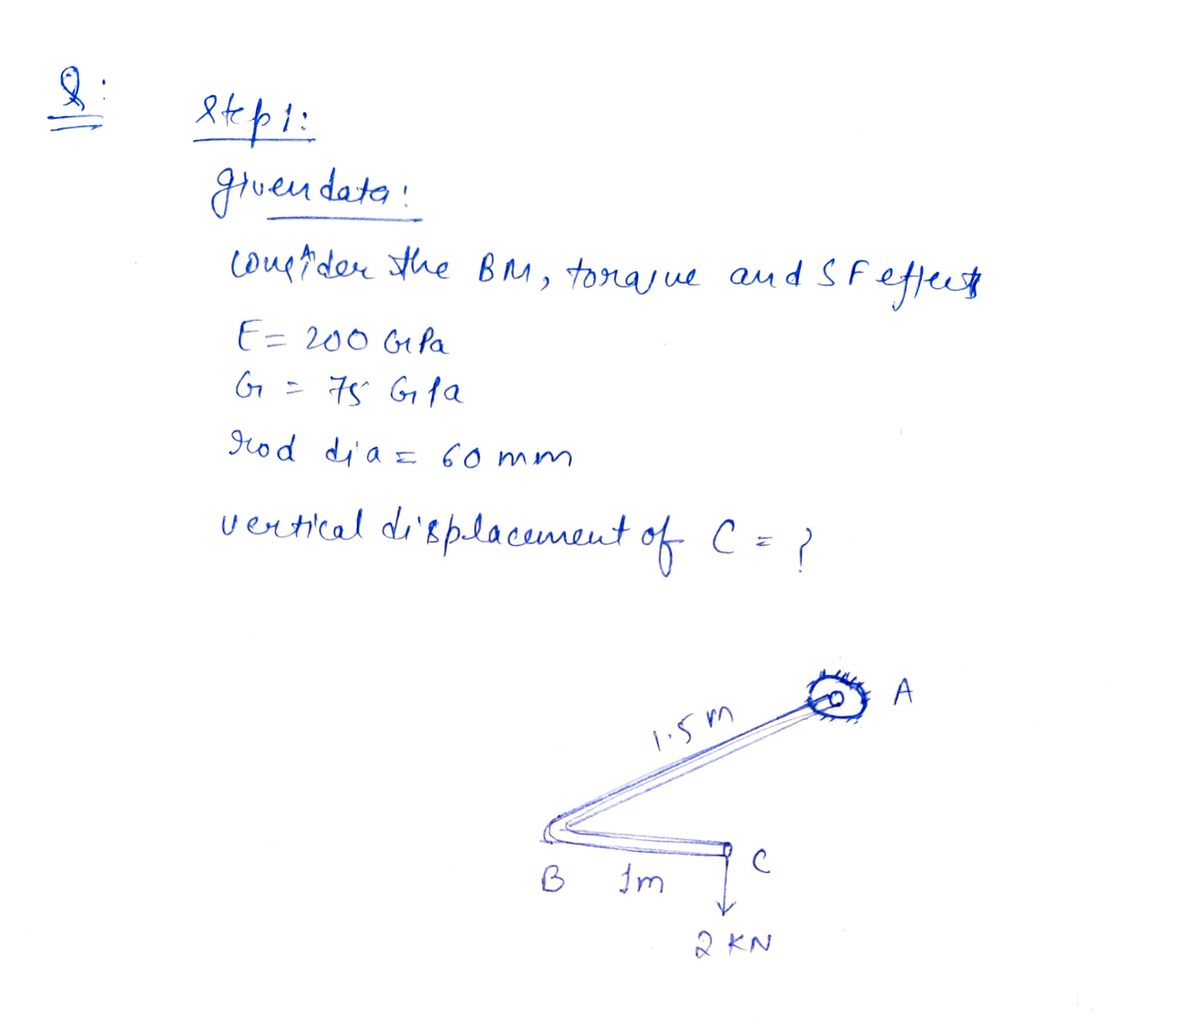 Q:
Step 1:
given data:
consider the BM, torque and SF effects
E = 200 GPa
G = 75 GPa
rod dia = 60 mm
vertical displacement of C = ?
A
1.5 m
B 1m C
2 KN